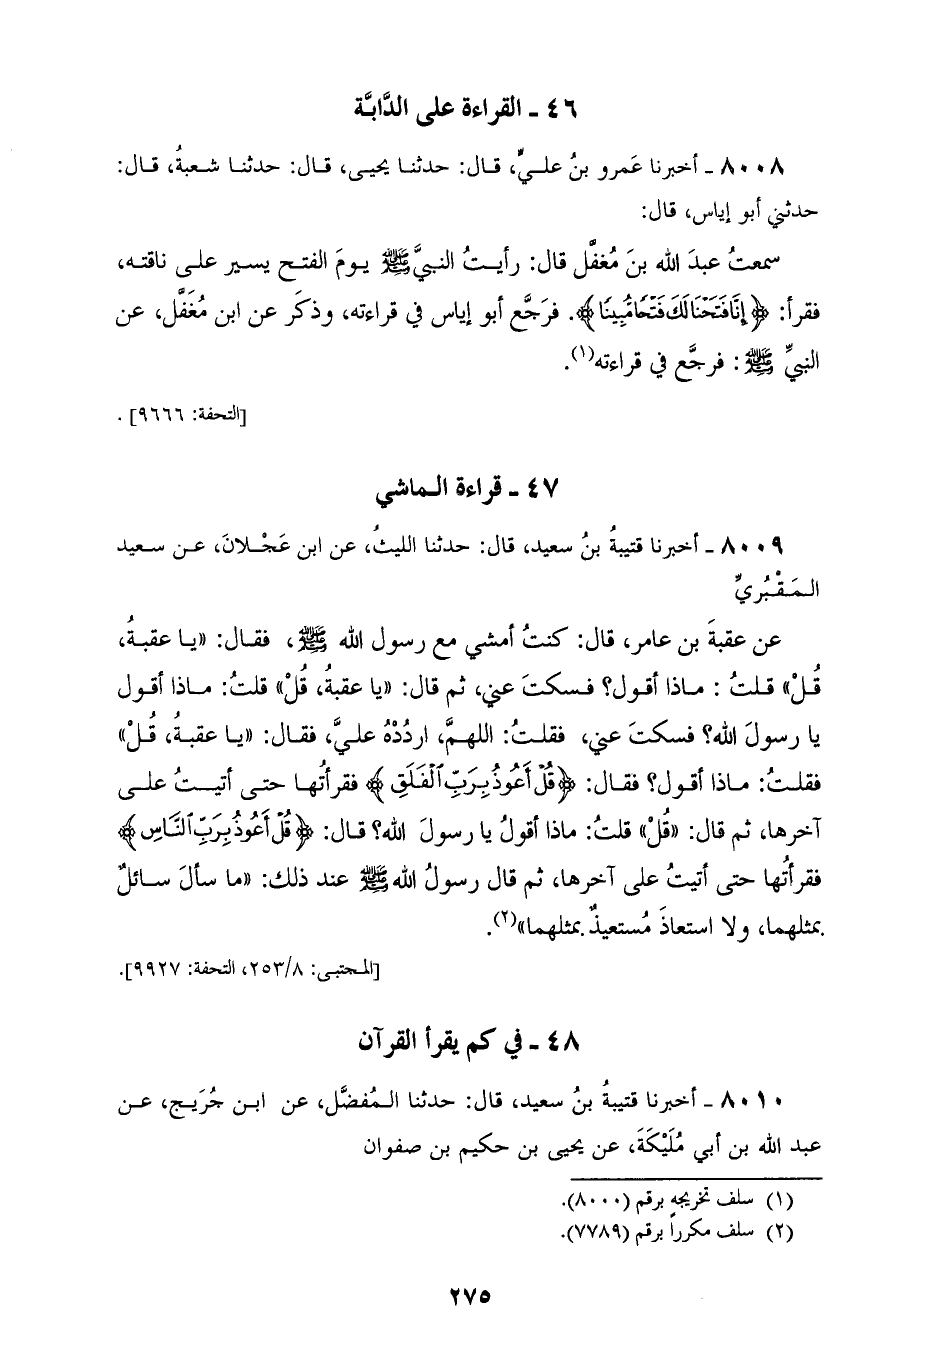 ٤٦ ـ القراءة على الدَّابَّة
٨٠٠٨ ـ أخبرنا عَمرو بنُ عليٍّ، قـال: حدثنـا يحيـى، قـال: حدثنـا شـعبةُ، قـال:
حدثني أبو إياس، قال:
سمعتُ عبدَ الله بنَ مُغفَّل قال: رأيـتُ النبيَّ ﷺ يـومَ الفتـح يسـير علـى ناقتـه،
فقرأ: ﴿إِنَّا فَتَحْنَا لَكَ فَتْحًا مُّبِينًا﴾. فرَجَّع أبو إياس في قراءته، وذكَر عن ابن مُغَفَّل، عن
النبيِّ ﷺ: فرجَّع في قراءته(١).
[التحفة: ٩٦٦٦] .
٤٧ ـ قراءة الـماشي
٨٠٠٩ ـ أخبرنا قتيبةُ بنُ سعيد، قال: حدثنا الليثُ، عن ابن عَجْـلانَ، عـن سـعيد
الـمَـقْبُريِّ
عن عقبةَ بن عامر، قال: كنتُ أمشي مع رسول الله ﷺ، فقـال: «يـا عقبـةُ،
قُـلْ» قـلـتُ : مـاذا أقول؟ فـسكتَ عني، ثم قال: «يا عقبةُ، قُلْ» قلتُ: مـاذا أقول
يا رسولَ الله؟ فسكتَ عني، فقلـتُ: اللهـمَّ، ارْدُدْهُ علـيَّ، فقـال: «يـا عقبـةُ، قُـلْ»
فقلتُ: ماذا أقول؟ فقال: ﴿قُلْ أَعُوذُ بِرَبِّ ٱلْفَلَقِ﴾ فقرأتُهـا حتـى أتيـتُ علـى
آخرها، ثم قال: «قُلْ» قلتُ: ماذا أقولُ يا رسولَ الله؟ قـال: ﴿قُلْ أَعُوذُ بِرَبِّ ٱلنَّاسِ﴾
فقرأتُها حتى أتيتُ على آخرها، ثم قال رسولُ الله ﷺ عند ذلك: «ما سألَ سـائلٌ
بمثلهما، ولا استعاذَ مُستعيذٌ بمثلهما»(٢).
[المـجتبى: ٢٥٣/٨، التحفة: ٩٩٢٧].
٤٨ ـ في كم يقرأ القرآن
٨٠١٠ ـ أخبرنا قتيبةُ بنُ سعيد، قال: حدثنا الـمُفضَّل، عن ابـن جُرَيـج، عـن
عبد الله بن أبي مُلَيْكَةَ، عن يحيى بن حكيم بن صفوان
(١) سلف تخريجه برقم (٨٠٠٠).
(٢) سلف مكرراً برقم (٧٧٨٩).
٢٧٥